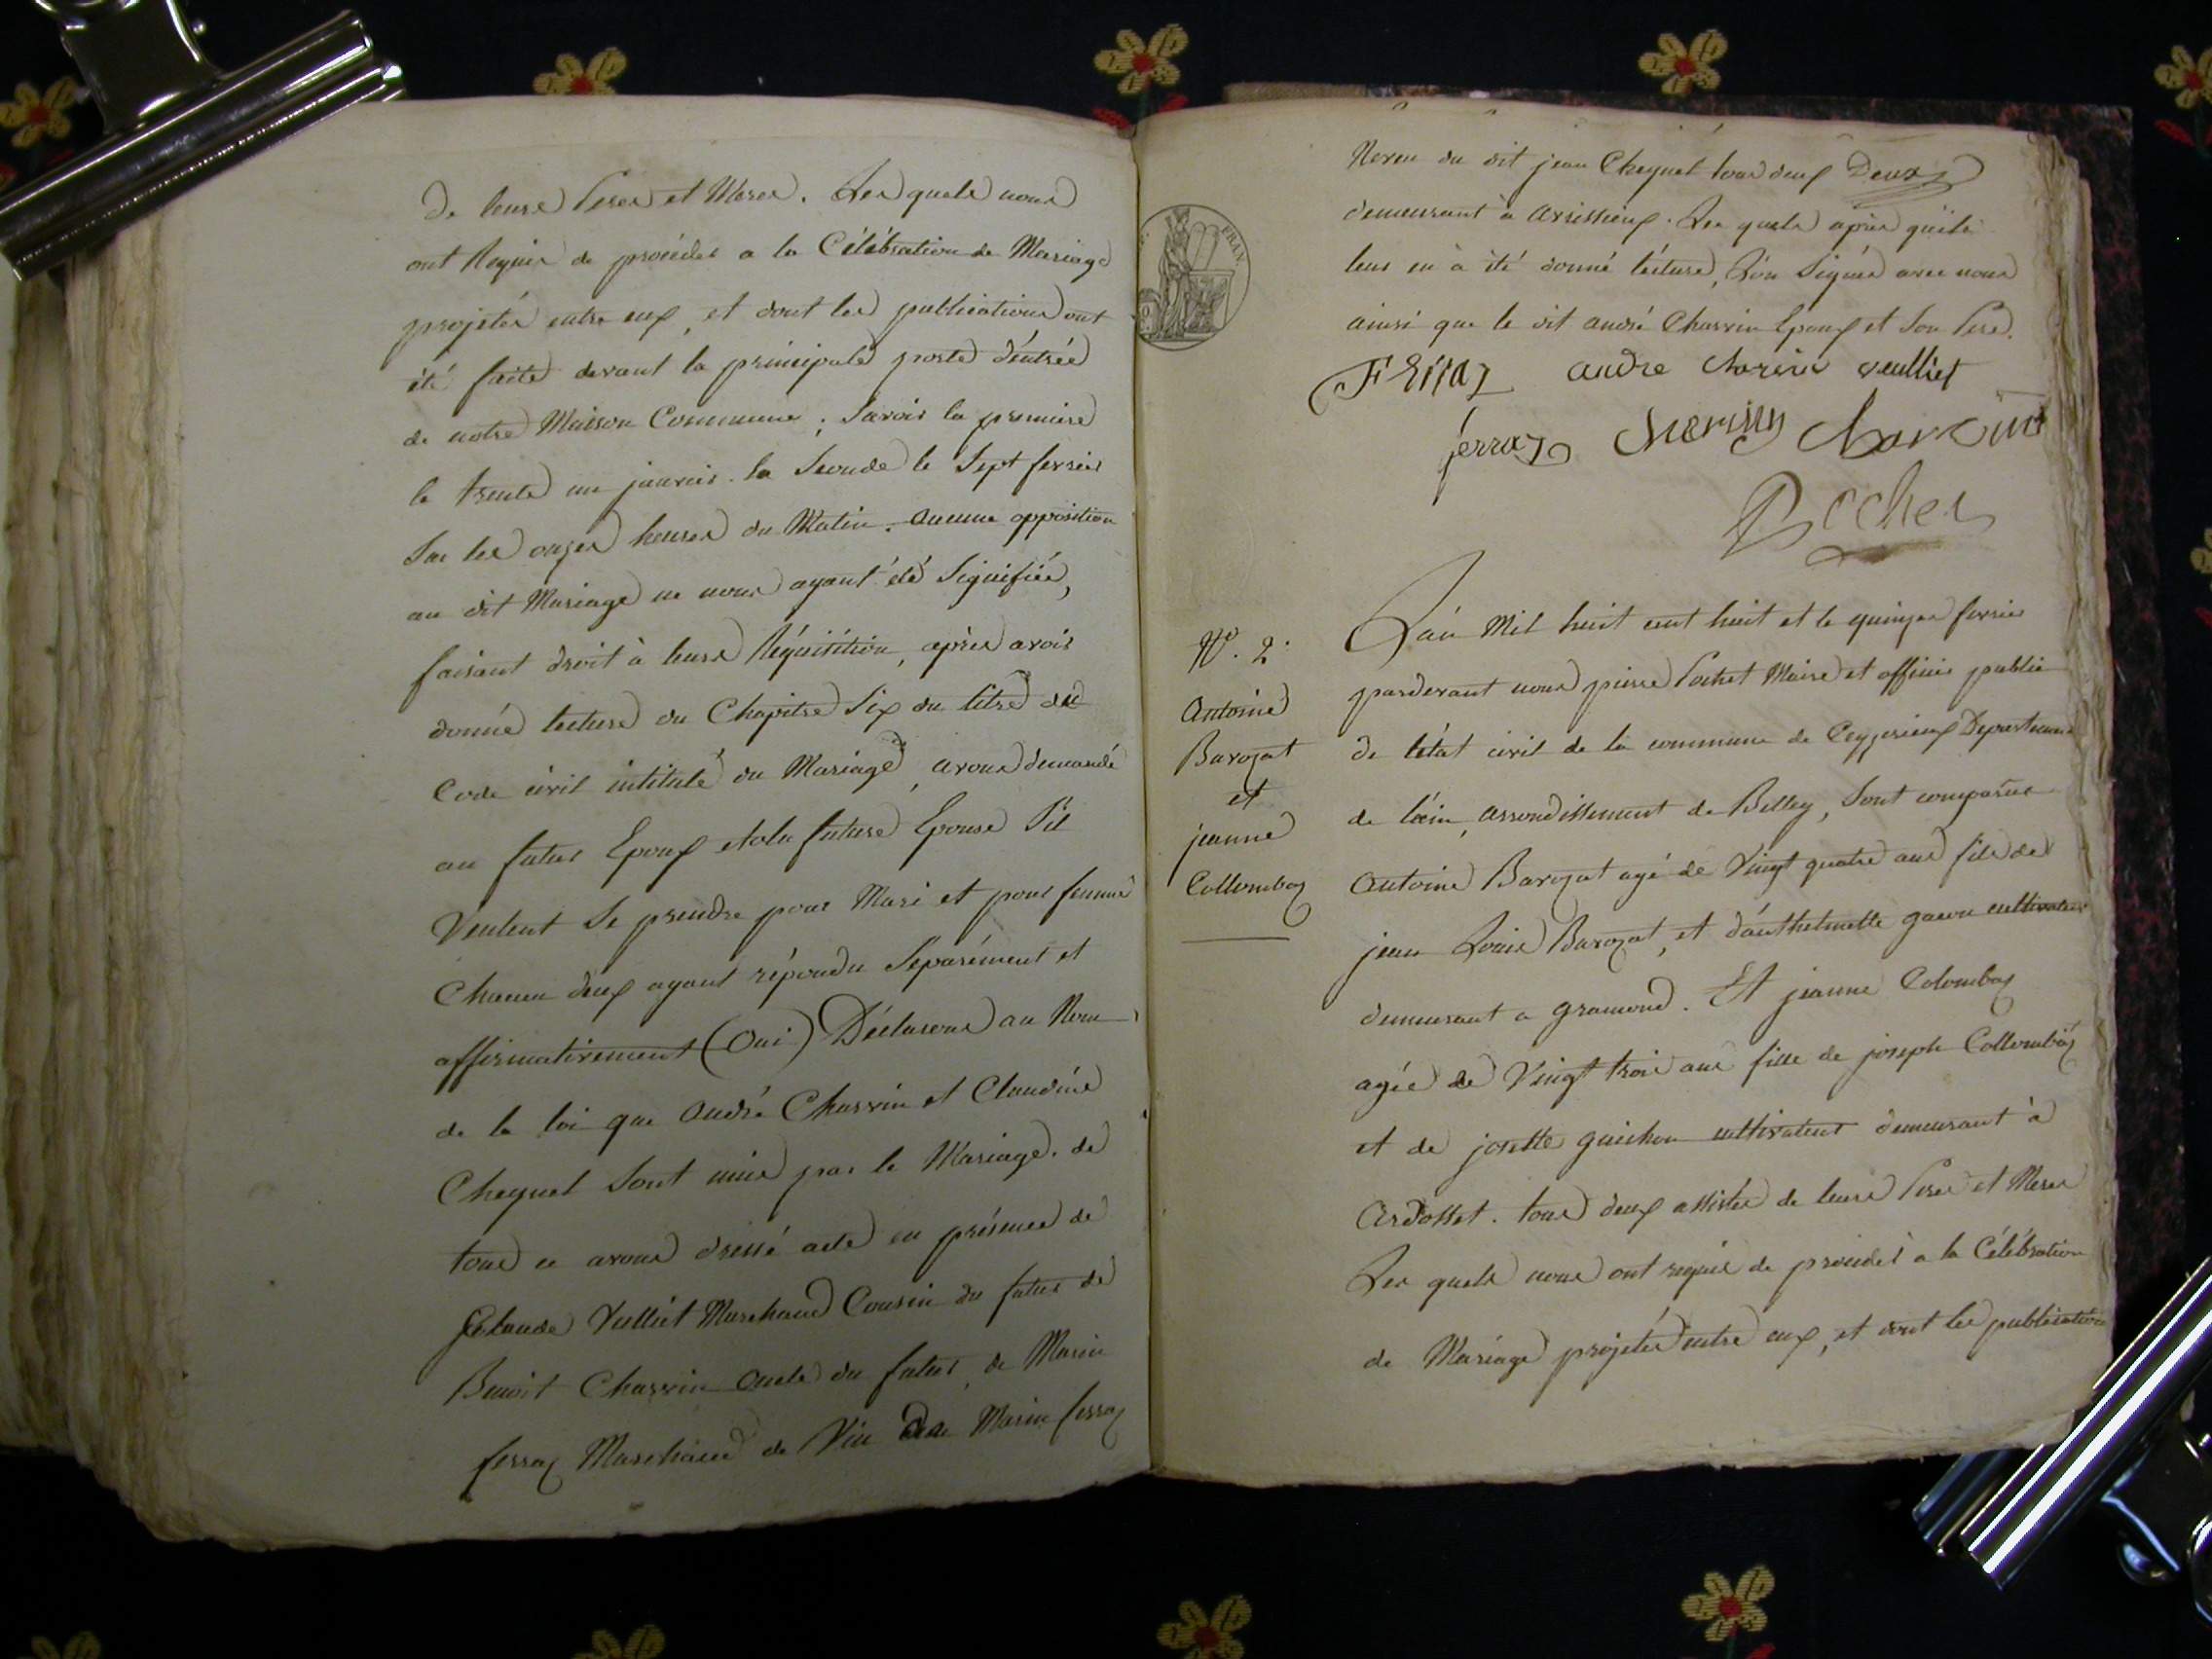 de leurs Peres et Meres. Les quels nous
ont Requis de procéder a la Célébration de Mariage
projetés entre eux, et dont les publications ont
été faites devant la principale porte d'entrée
de notre Maison Commune; Savoir la premiere
le trente un janvier. la Seconde le Sept fevrier
Sur les onzes heures du Matin. aucune opposition
au dit Mariage ne nous ayant été Signifiée,
faisant droit à leurs Réquisition, après avoir
donné lecture du Chapitre Six du titre du
Code civil intitulé du Mariage, avons demandé
au futur Epoux et ala future Epouse S'il
Veulent Se prendre pour Mari et pour femme
Chacun deux ayant répondu Séparément et
affirmativement (Oui) Déclarons au Nom
de la loi que André Charvin et Claudine
Cheynel Sont unis par le Mariage. de
tous ce avons dressé acte en présence de
Claude Vulliet Marchand Cousin du futur de
Benoit Charvin oncle du futur, de Marin
ferraz Marchand de Vin de Marin ferraz
Neveu du dit jean Cheynel tous deux Deux
demeurant à arrissieux. Les quels après qu'ils
leur en à été donné lécture, L'on Signés avec nous
ainsi que le dit andré Charvin Epoux et Son Pere.
andre charvin veulliet
ferraz Charvin Charvin
Pochet
L'an Mil huit cent huit et le quinze fevrier
pardevant nous pierre Pochet Maire et officier public
de létat civil de la commune de Ceyzerieux Departement
de l'ain, arrondissement de Belley, Sont comparus
Antoine Barozat agé de Vingt quatre ans fils de
jean Louis Barozat, et d'anthelmette cultivateur
demeurant a gramond. Et jeanne Colombaz
agée de Vingt trois ans fille de joseph Collombaz
et de josette guichon cultivateur demeurant à
Ardosset. tous deux assistés de leurs Peres et Meres
Les quels nous ont requis de procéder a la Célébration
de Mariage projetés entre eux, et dont les publications
N°. 2.
Antoine
Barozat
et
jeanne
Collombaz
FRAN.